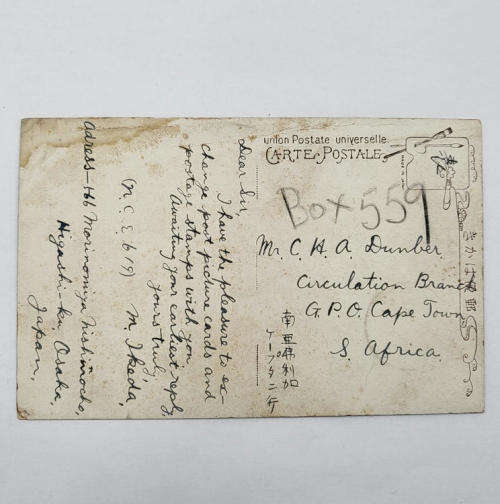 union Postale universelle.
CARTE POSTALE
Box 559
Mr. C. H. A Dunber.
Circulation Branch
G. P. O. Cape Town
S. Africa.
南亜弗利加
ケープタニ行
きかは便郵
Dear Sir,
I have the pleasure to ex-
change post picture cards and
postage stamps with you
Awaiting your earliest reply,
yours truly,
M. Ikeda,
(N. C. E 619)
Adress—166 Morinomiya Nishinocho,
Higashi-ku, Osaka,
Japan.